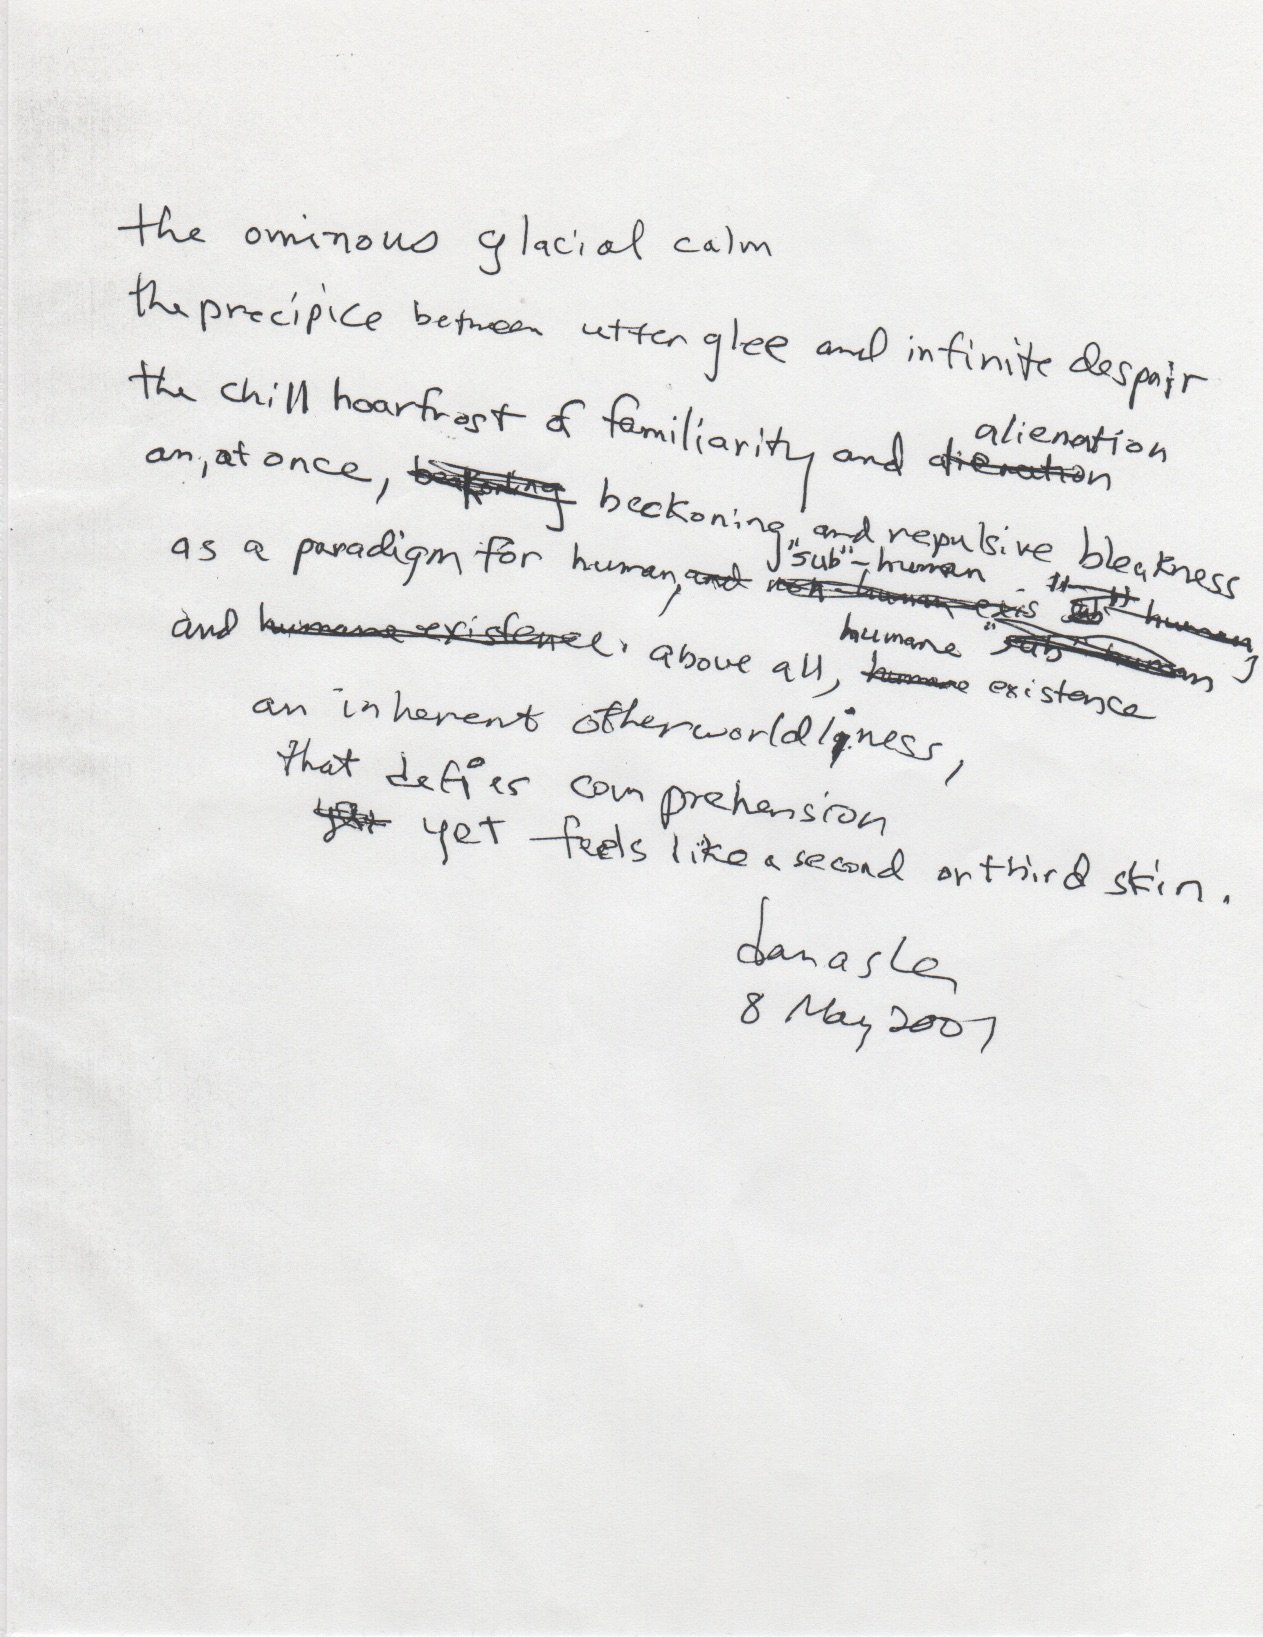 the ominous glacial calm
the precipice between utter glee and infinite despair
the chill hoarfrost of familiarity and alienation
an, at once, beckoning and repulsive bleakness
as a paradigm for human, "sub"-human
and above all, humane existence
an inherent otherworldliness,
that defies comprehension
yet feels like a second or third skin.
8 May 2007